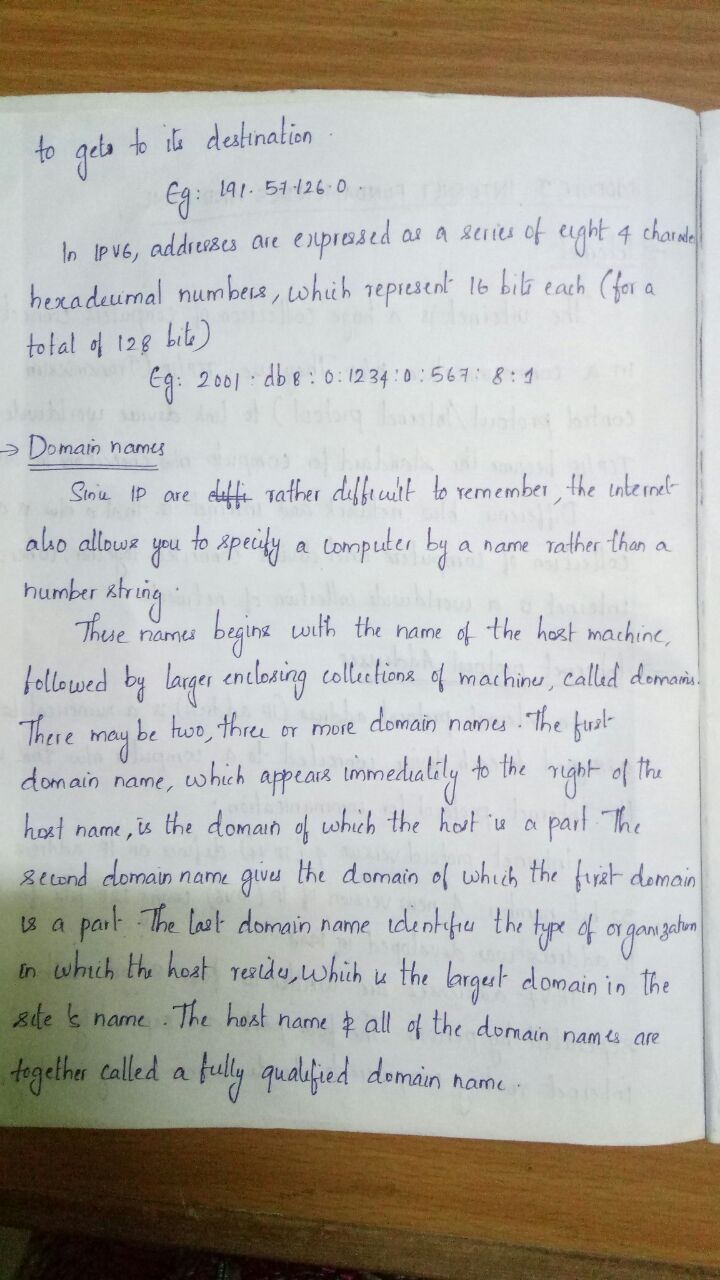 to gets to its destination.
Eg: 191.57.126.0.
In IPV6, addresses are expressed as a series of eight 4
hexadecimal numbers, which represent 16 bits each (for a
total of 128 bits)
Eg: 2001 : db8 : 0 : 1234 : 0 : 567 : 8 : 1
→ Domain names
Since IP are diffi rather difficult to remember, the internet
also allows you to specify a computer by a name rather than a
number string.
These names begins with the name of the host machine,
followed by larger enclosing collections of machines, called domains.
There may be two, three or more domain names. The first
domain name, which appears immediatily to the right of the
host name, is the domain of which the host is a part. The
second domain name gives the domain of which the first domain
is a part. The last domain name identifies the type of organization
in which the host resides, which is the largest domain in the
site's name. The host name & all of the domain names are
together called a fully qualified domain name.